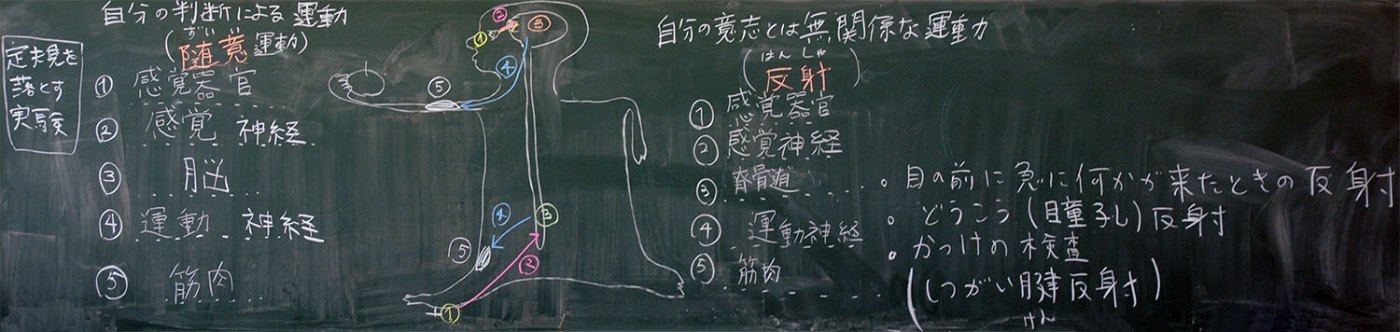 定規を
落とす
実験
自分の判断による運動
(随意運動)
ずいい
① 感覚器官
② 感覚神経
③ 脳
④ 運動神経
⑤ 筋肉
① ② ③
④
⑤
④ ③
⑤
②
①
自分の意志とは無関係な運動
はんしゃ
(反射)
① 感覚器官
② 感覚神経
③ 脊骨追
④ 運動神経
⑤ 筋肉
。目の前に急に何かが来たときの反射
。どうこう(瞳孔)反射
。かっけの検査
(しつがい腱反射)
けん